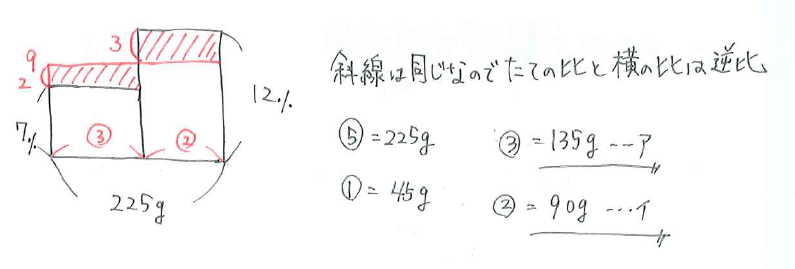 3
9
2
12%
7%
③ ②
225g
斜線は同じなのでたての比と横の比は逆比
⑤=225g ③=135g…ア
①=45g ②=90g…イ